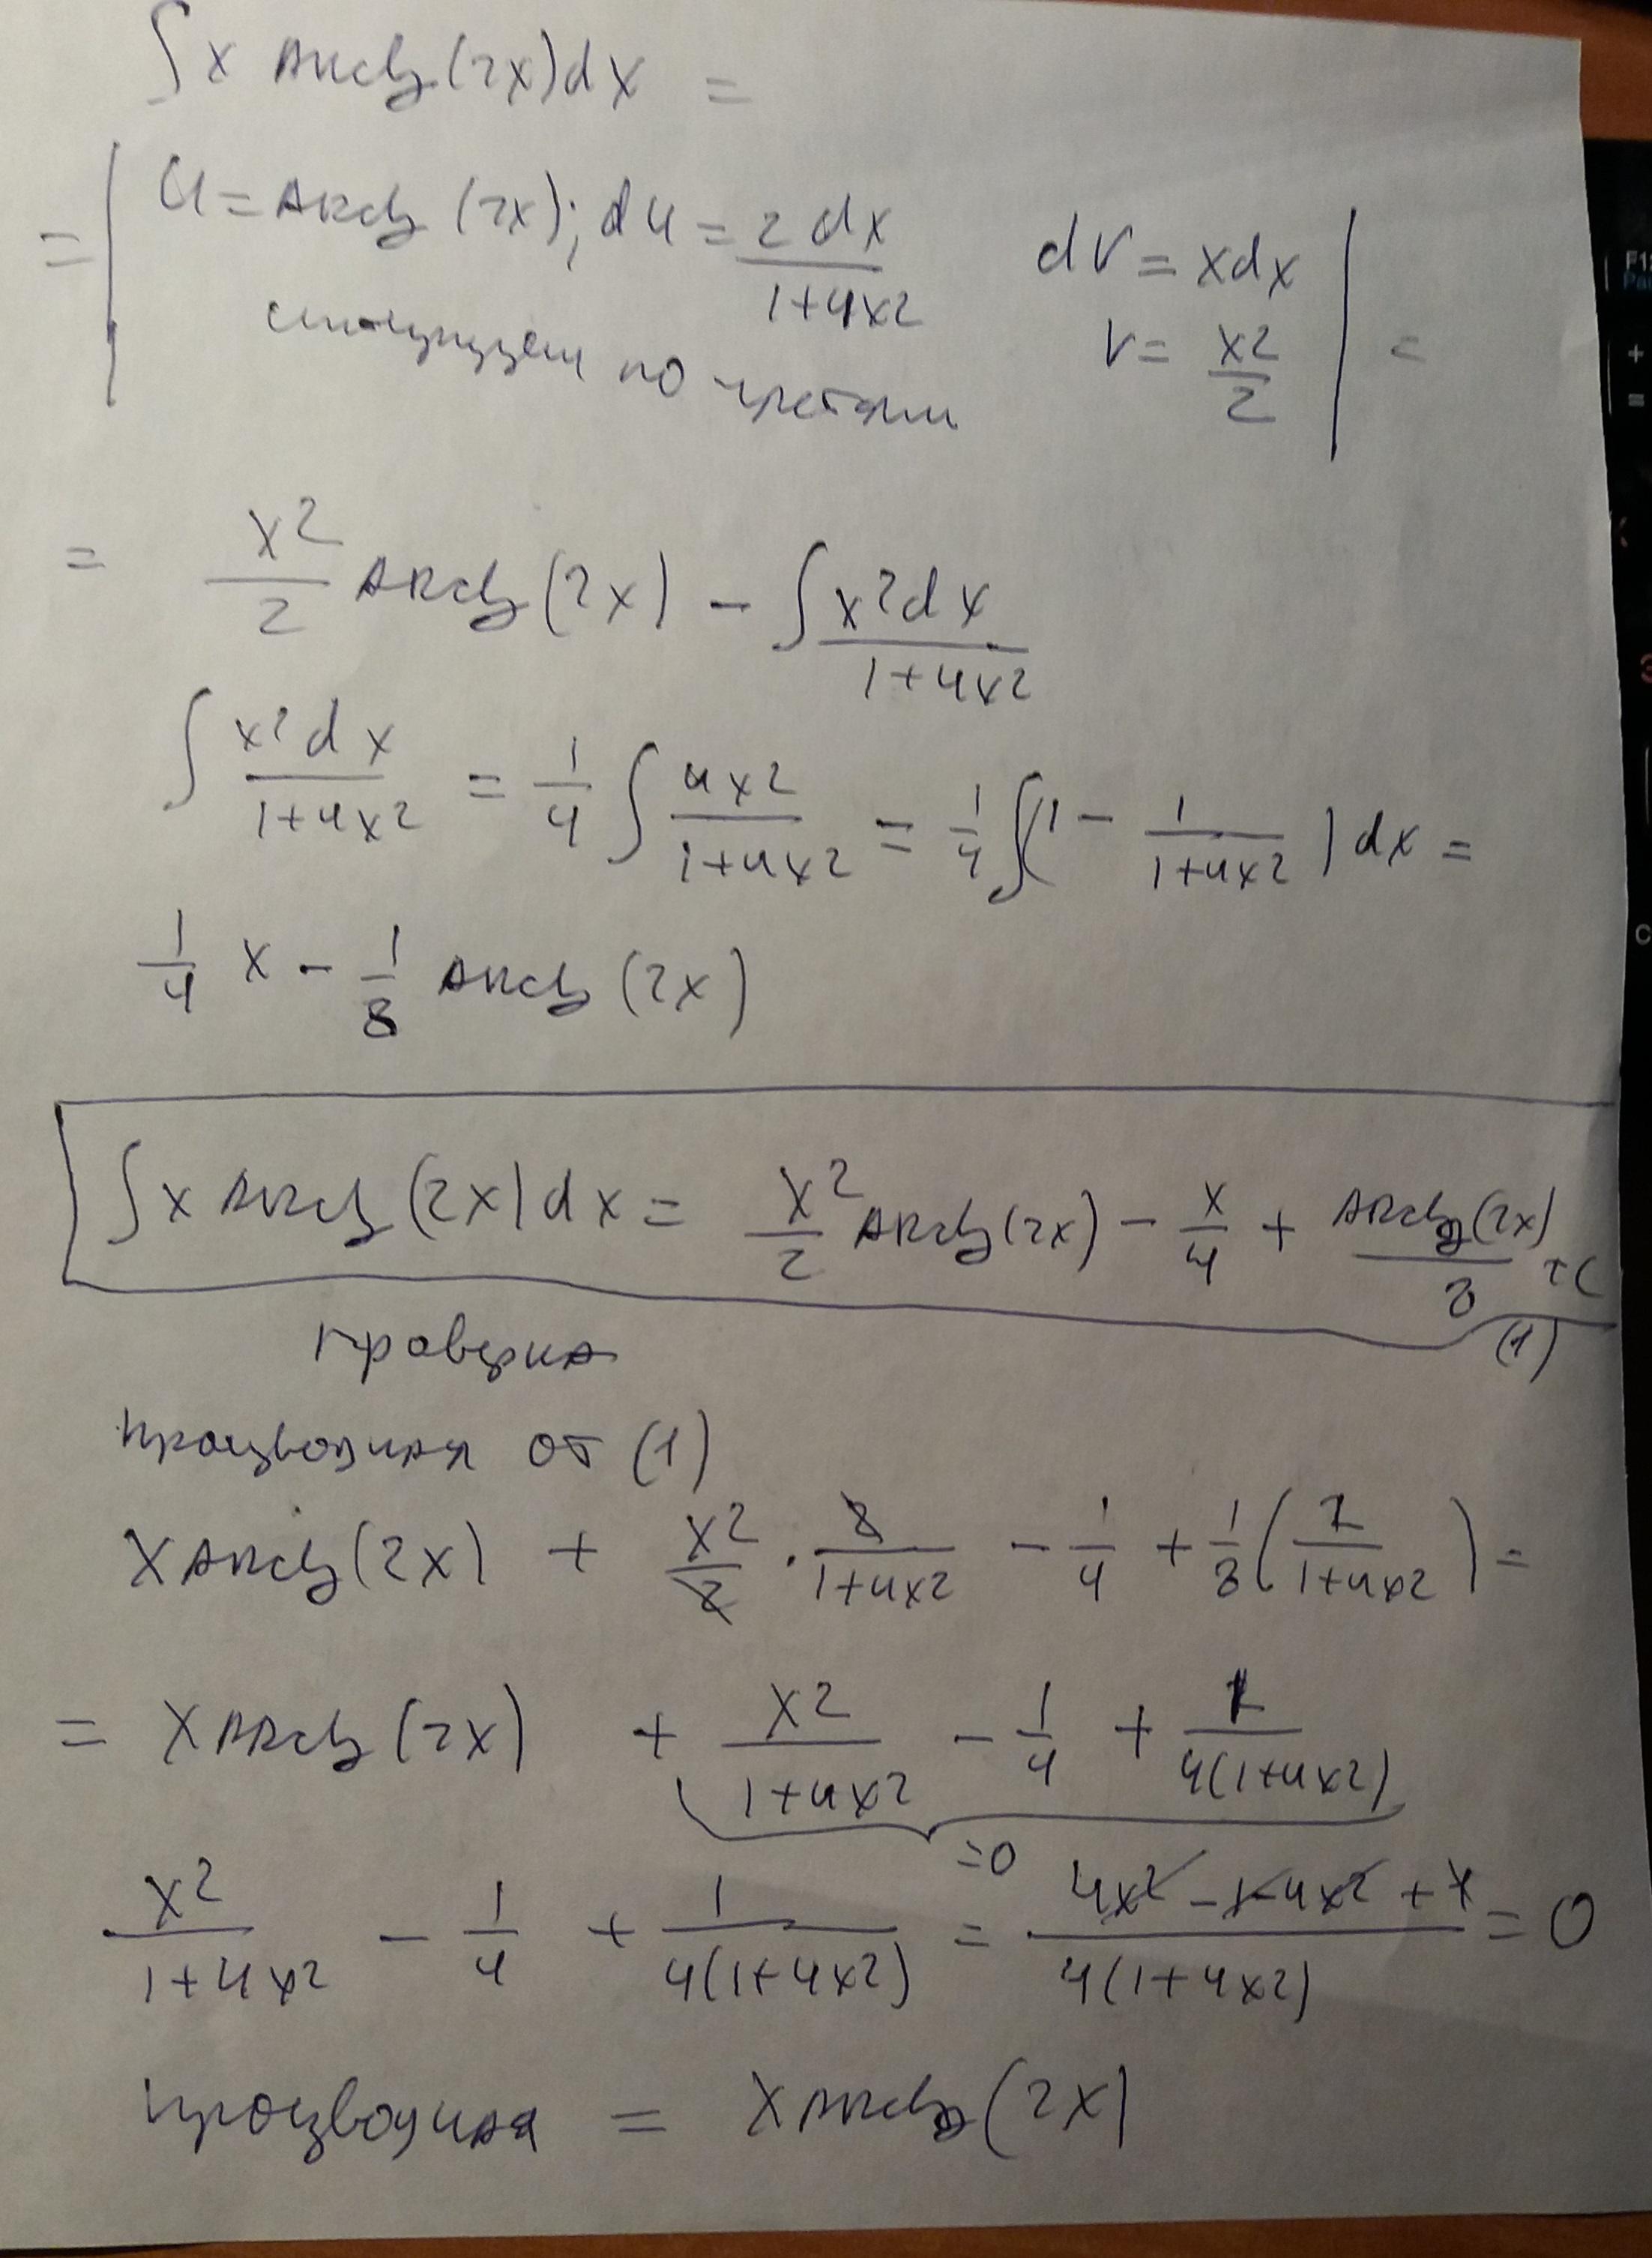 ∫ x arctg(2x)dx =
= | u = arctg(2x); du = 2dx/(1+4x²) dv = xdx
интегрируем по частям v = x²/2 | =
= x²/2 arctg(2x) − ∫ x²dx/(1+4x²)
∫ x²dx/(1+4x²) = 1/4 ∫ 4x²/(1+4x²) = 1/4 ∫(1 − 1/(1+4x²))dx =
1/4 x − 1/8 arctg(2x)
∫ x arctg(2x)dx = x²/2 arctg(2x) − x/4 + arctg(2x)/8 + C
(1)
проверка
производная от (1)
x arctg(2x) + x²/2 · 2/(1+4x²) − 1/4 + 1/8(2/(1+4x²)) =
= x arctg(2x) + x²/(1+4x²) − 1/4 + 1/(4(1+4x²))
=0
x²/(1+4x²) − 1/4 + 1/(4(1+4x²)) = (4x² − 1 − 4x² + 1)/(4(1+4x²)) = 0
производная = x arctg(2x)